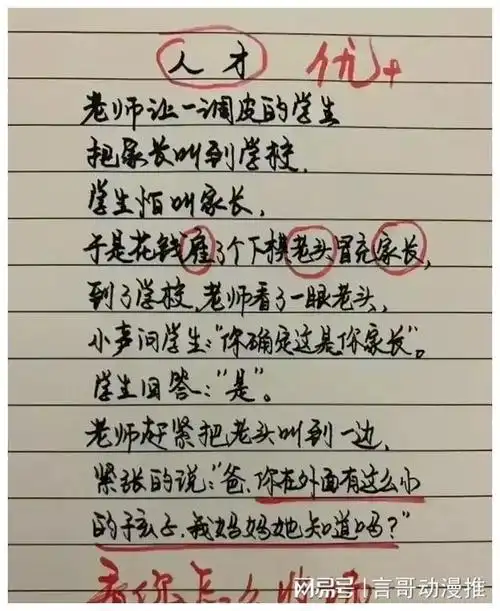 人才 优+
老师让一调皮的学生
把家长叫到学校,
学生怕叫家长,
于是花钱雇了个下棋老头冒充家长,
到了学校,老师看了一眼老头,
小声问学生:"你确定这是你家长"。
学生回答:"是"。
老师赶紧把老头叫到一边,
紧张的说:"爸,你在外面有这么小
的孩子,我妈妈她知道吗?"
看你怎么收场
网易号 | 言哥动漫推